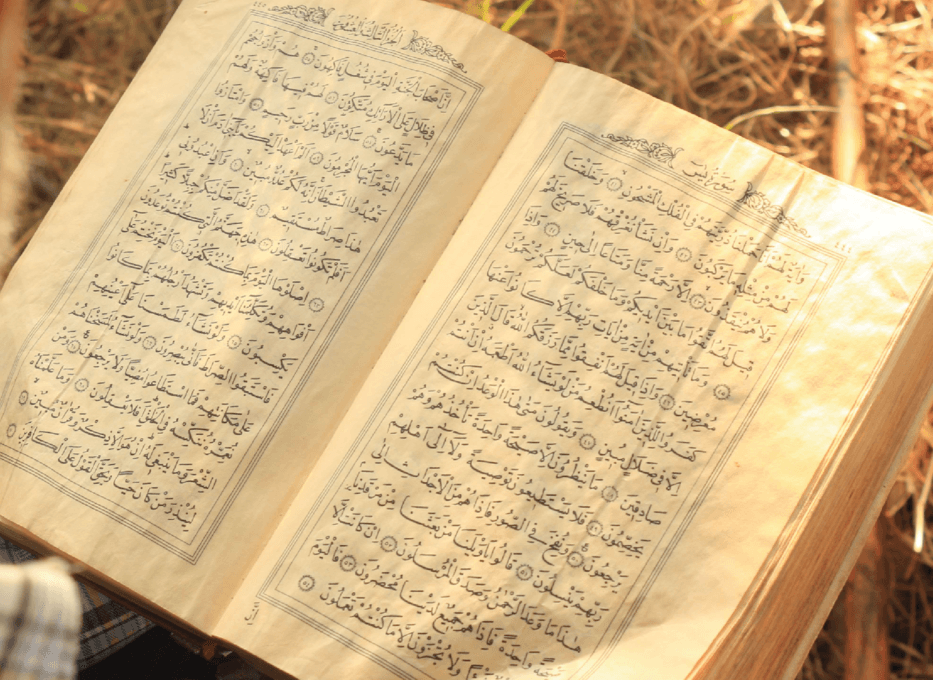 سورة يس
وَاٰيَةٌ لَهُمْ اَنَّا حَمَلْنَا ذُرِّيَّتَهُمْ فِي الْفُلْكِ الْمَشْحُونِ ﴿٤١﴾ وَخَلَقْنَا
لَهُمْ مِنْ مِثْلِهِ مَا يَرْكَبُونَ ﴿٤٢﴾ وَاِنْ نَشَأْ نُغْرِقْهُمْ فَلَا صَرِيخَ لَهُمْ
وَلَا هُمْ يُنْقَذُونَ ﴿٤٣﴾ اِلَّا رَحْمَةً مِنَّا وَمَتَاعًا اِلٰى حِينٍ ﴿٤٤﴾ وَاِذَا
قِيلَ لَهُمُ اتَّقُوا مَا بَيْنَ اَيْدِيكُمْ وَمَا خَلْفَكُمْ لَعَلَّكُمْ تُرْحَمُونَ
﴿٤٥﴾ وَمَا تَأْتِيهِمْ مِنْ اٰيَةٍ مِنْ اٰيَاتِ رَبِّهِمْ اِلَّا كَانُوا عَنْهَا
مُعْرِضِينَ ﴿٤٦﴾ وَاِذَا قِيلَ لَهُمْ اَنْفِقُوا مِمَّا رَزَقَكُمُ اللّٰهُ قَالَ الَّذِينَ
كَفَرُوا لِلَّذِينَ اٰمَنُوا اَنُطْعِمُ مَنْ لَوْ يَشَاءُ اللّٰهُ اَطْعَمَهُ اِنْ اَنْتُمْ
اِلَّا فِي ضَلَالٍ مُبِينٍ ﴿٤٧﴾ وَيَقُولُونَ مَتٰى هٰذَا الْوَعْدُ اِنْ كُنْتُمْ
صَادِقِينَ ﴿٤٨﴾ مَا يَنْظُرُونَ اِلَّا صَيْحَةً وَاحِدَةً تَأْخُذُهُمْ وَهُمْ
يَخِصِّمُونَ ﴿٤٩﴾ فَلَا يَسْتَطِيعُونَ تَوْصِيَةً وَلَا اِلٰى اَهْلِهِمْ
يَرْجِعُونَ ﴿٥٠﴾ وَنُفِخَ فِي الصُّورِ فَاِذَا هُمْ مِنَ الْاَجْدَاثِ اِلٰى
رَبِّهِمْ يَنْسِلُونَ ﴿٥١﴾ قَالُوا يَا وَيْلَنَا مَنْ بَعَثَنَا مِنْ مَرْقَدِنَا
هٰذَا مَا وَعَدَ الرَّحْمٰنُ وَصَدَقَ الْمُرْسَلُونَ ﴿٥٢﴾ اِنْ كَانَتْ اِلَّا
صَيْحَةً وَاحِدَةً فَاِذَا هُمْ جَمِيعٌ لَدَيْنَا مُحْضَرُونَ ﴿٥٣﴾ فَالْيَوْمَ
شَيْئًا وَلَا تُجْزَوْنَ اِلَّا مَا كُنْتُمْ تَعْمَلُونَ ﴿٥٤﴾
الجزء الثالث والعشرون
اِنَّ اَصْحَابَ الْجَنَّةِ الْيَوْمَ فِي شُغُلٍ فَاكِهُونَ ﴿٥٥﴾ هُمْ وَاَزْوَاجُهُمْ
فِي ظِلَالٍ عَلَى الْاَرَائِكِ مُتَّكِئُونَ ﴿٥٦﴾ لَهُمْ فِيهَا فَاكِهَةٌ وَلَهُمْ
مَا يَدَّعُونَ ﴿٥٧﴾ سَلَامٌ قَوْلًا مِنْ رَبٍّ رَحِيمٍ ﴿٥٨﴾ وَامْتَازُوا
الْيَوْمَ اَيُّهَا الْمُجْرِمُونَ ﴿٥٩﴾ اَلَمْ اَعْهَدْ اِلَيْكُمْ يَا بَنِي اٰدَمَ اَنْ لَا
تَعْبُدُوا الشَّيْطَانَ اِنَّهُ لَكُمْ عَدُوٌّ مُبِينٌ ﴿٦٠﴾ وَاَنِ اعْبُدُونِي
هٰذَا صِرَاطٌ مُسْتَقِيمٌ ﴿٦١﴾ وَلَقَدْ اَضَلَّ مِنْكُمْ جِبِلًّا كَثِيرًا
اَفَلَمْ تَكُونُوا تَعْقِلُونَ ﴿٦٢﴾ هٰذِهِ جَهَنَّمُ الَّتِي كُنْتُمْ تُوعَدُونَ
﴿٦٣﴾ اِصْلَوْهَا الْيَوْمَ بِمَا كُنْتُمْ تَكْفُرُونَ ﴿٦٤﴾ اَلْيَوْمَ نَخْتِمُ عَلٰى
اَفْوَاهِهِمْ وَتُكَلِّمُنَا اَيْدِيهِمْ وَتَشْهَدُ اَرْجُلُهُمْ بِمَا كَانُوا
يَكْسِبُونَ ﴿٦٥﴾ وَلَوْ نَشَاءُ لَطَمَسْنَا عَلٰى اَعْيُنِهِمْ
فَاسْتَبَقُوا الصِّرَاطَ فَاَنّٰى يُبْصِرُونَ ﴿٦٦﴾ وَلَوْ نَشَاءُ لَمَسَخْنَاهُمْ
عَلٰى مَكَانَتِهِمْ فَمَا اسْتَطَاعُوا مُضِيًّا وَلَا يَرْجِعُونَ ﴿٦٧﴾ وَمَنْ
نُعَمِّرْهُ نُنَكِّسْهُ فِي الْخَلْقِ اَفَلَا يَعْقِلُونَ ﴿٦٨﴾ وَمَا عَلَّمْنَاهُ
الشِّعْرَ وَمَا يَنْبَغِي لَهُ اِنْ هُوَ اِلَّا ذِكْرٌ وَقُرْاٰنٌ مُبِينٌ ﴿٦٩﴾
لِيُنْذِرَ مَنْ كَانَ حَيًّا وَيَحِقَّ الْقَوْلُ عَلَى الْكَافِرِينَ ﴿٧٠﴾